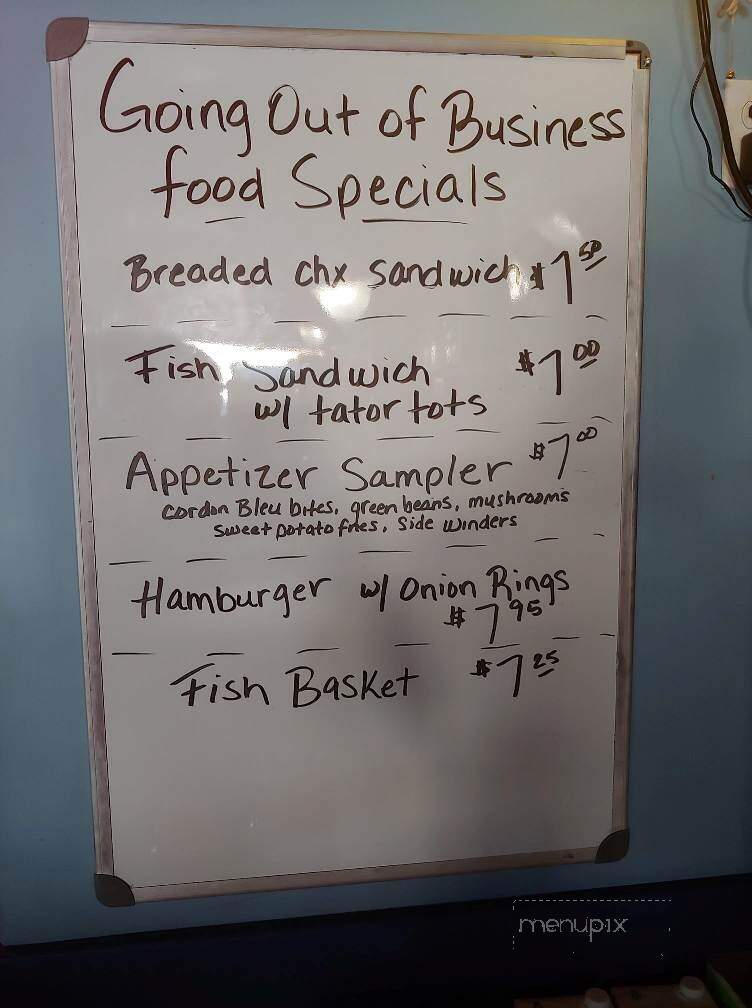 Going Out of Business
food Specials
Breaded chx sandwich $7.50
Fish Sandwich $7.00
w/ tator tots
Appetizer Sampler $7.00
cordon Bleu bites, green beans, mushrooms
sweet potato fries, Side Winders
Hamburger w/ Onion Rings
$7.95
Fish Basket $7.25
menupix